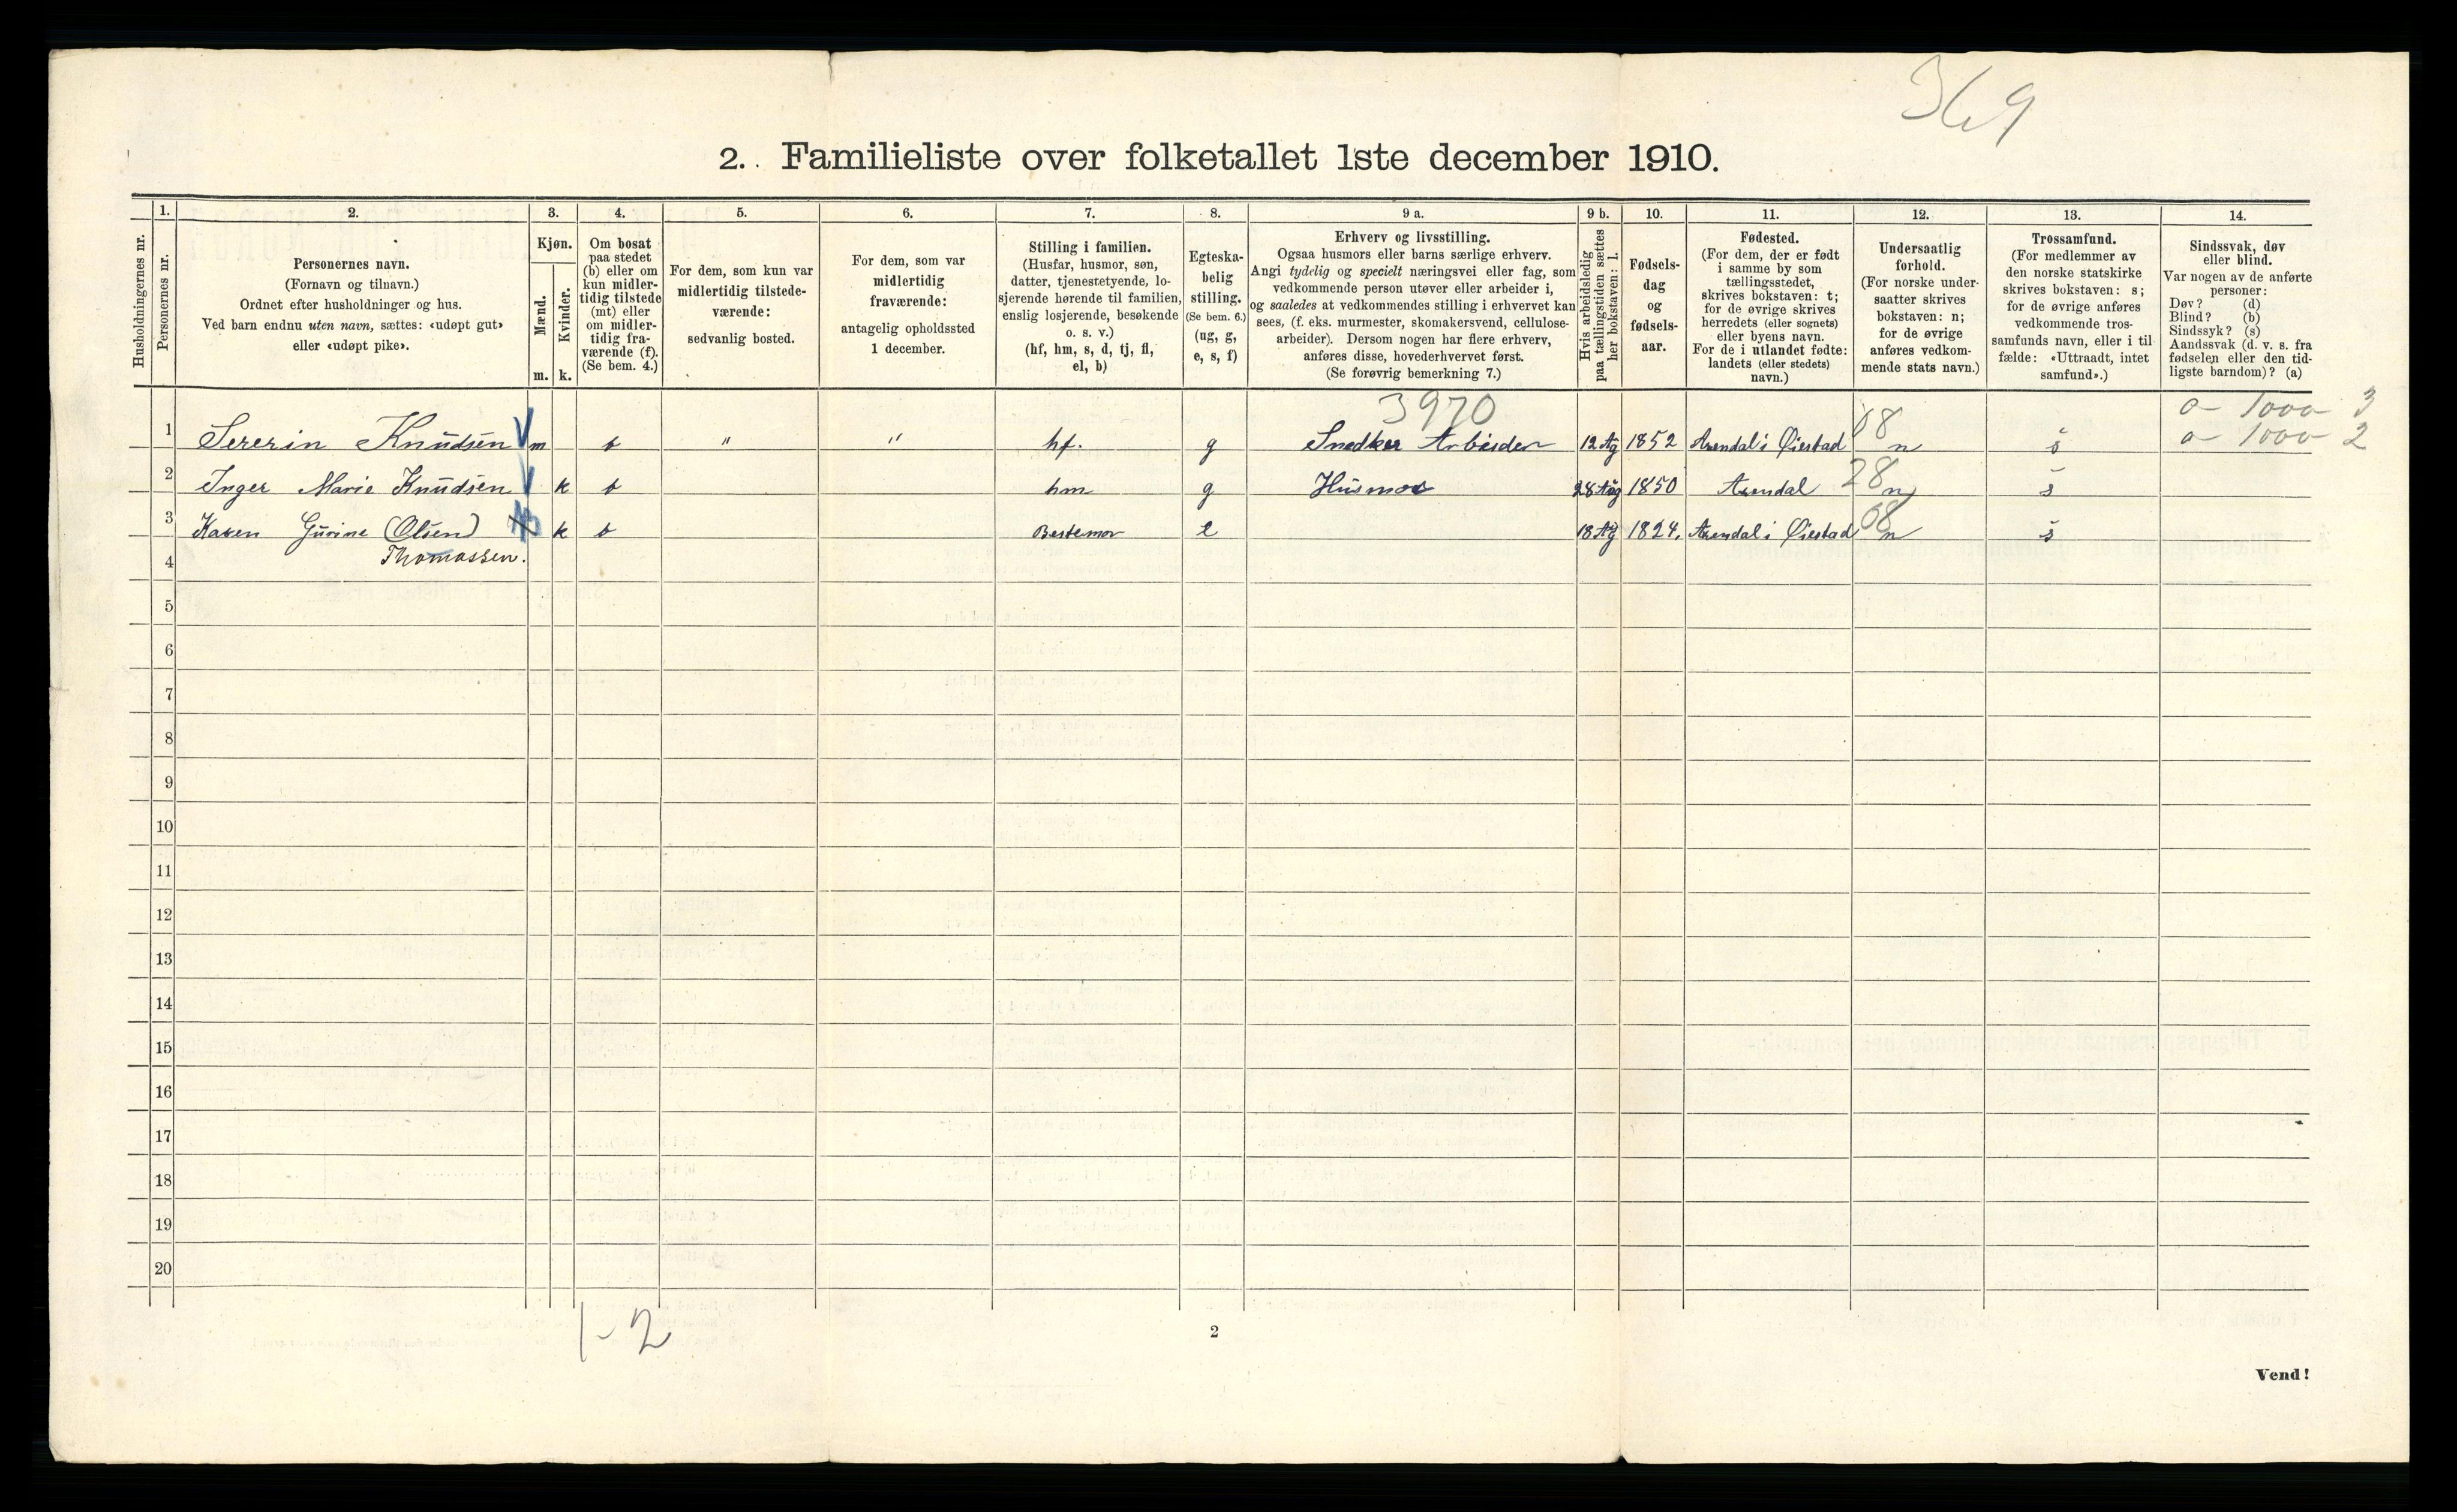 369
2. Familieliste over folketallet 1ste december 1910.
Husholdningernes nr.
1.
Personernes nr.
2.
Personernes navn.
(Fornavn og tilnavn.)
Ordnet efter husholdninger og hus.
Ved barn endnu uten navn, sættes: «udøpt gut»
eller «udøpt pike».
3.
Kjøn.
Mænd.
Kvinder.
m. k.
4.
Om bosat
paa stedet
(b) eller om
kun midler-
tidig tilstede
(mt) eller
om midler-
tidig fra-
værende (f).
(Se bem. 4.)
5.
For dem, som kun var
midlertidig tilstede-
værende:
sedvanlig bosted.
6.
For dem, som var
midlertidig
fraværende:
antagelig opholdssted
1 december.
7.
Stilling i familien.
(Husfar, husmor, søn,
datter, tjenestetyende, lo-
sjerende hørende til familien,
enslig losjerende, besøkende
o. s. v.)
(hf, hm, s, d, tj, fl,
el, b)
8.
Egteska-
belig
stilling.
(Se bem. 6.)
(ug, g,
e, s, f)
9 a.
Erhverv og livsstilling.
Ogsaa husmors eller barns særlige erhverv.
Angi tydelig og specielt næringsvei eller fag, som
vedkommende person utøver eller arbeider i,
og saaledes at vedkommendes stilling i erhvervet kan
sees, (f. eks. murmester, skomakersvend, cellulose-
arbeider). Dersom nogen har flere erhverv,
anføres disse, hovederhvervet først.
(Se forøvrig bemerkning 7.)
9 b.
Hvis arbeidsledig
paa tællingstiden sættes
her bokstaven: l.
10.
Fødsels-
dag
og
fødsels-
aar.
11.
Fødested.
(For dem, der er født
i samme by som
tællingsstedet,
skrives bokstaven: t;
for de øvrige skrives
herredets (eller sognets)
eller byens navn.
For de i utlandet fødte:
landets (eller stedets)
navn.)
12.
Undersaatlig
forhold.
(For norske under-
saatter skrives
bokstaven: n;
for de øvrige
anføres vedkom-
mende stats navn.)
13.
Trossamfund.
(For medlemmer av
den norske statskirke
skrives bokstaven: s;
for de øvrige anføres
vedkommende tros-
samfunds navn, eller i til
fælde: «Uttraadt, intet
samfund».)
14.
Sindssvak, døv
eller blind.
Var nogen av de anførte
personer:
Døv? (d)
Blind? (b)
Sindssyk? (s)
Aandssvak (d. v. s. fra
fødselen eller den tid-
ligste barndom)? (a)
3970 0 - 1000 - 3
1 Sererin Knudsen m b " " hf. g Snedker Arbeider 12 Ag 1852 Arendal i Øiestad 08 n s 0 - 1000 - 2
2 Inger Marie Knudsen k b hm g Husmor 28 Aug 1850 Arendal 28 n s
3 Karen Gurine (Olsen) k b Bestemor e 18 Ag 1824. Arendal i Øiestad 08 n s
4 Thomassen.
5
6
7
8
9
10
11
12
13
14
15
16
17
18
19
20
1-2
2
Vend!